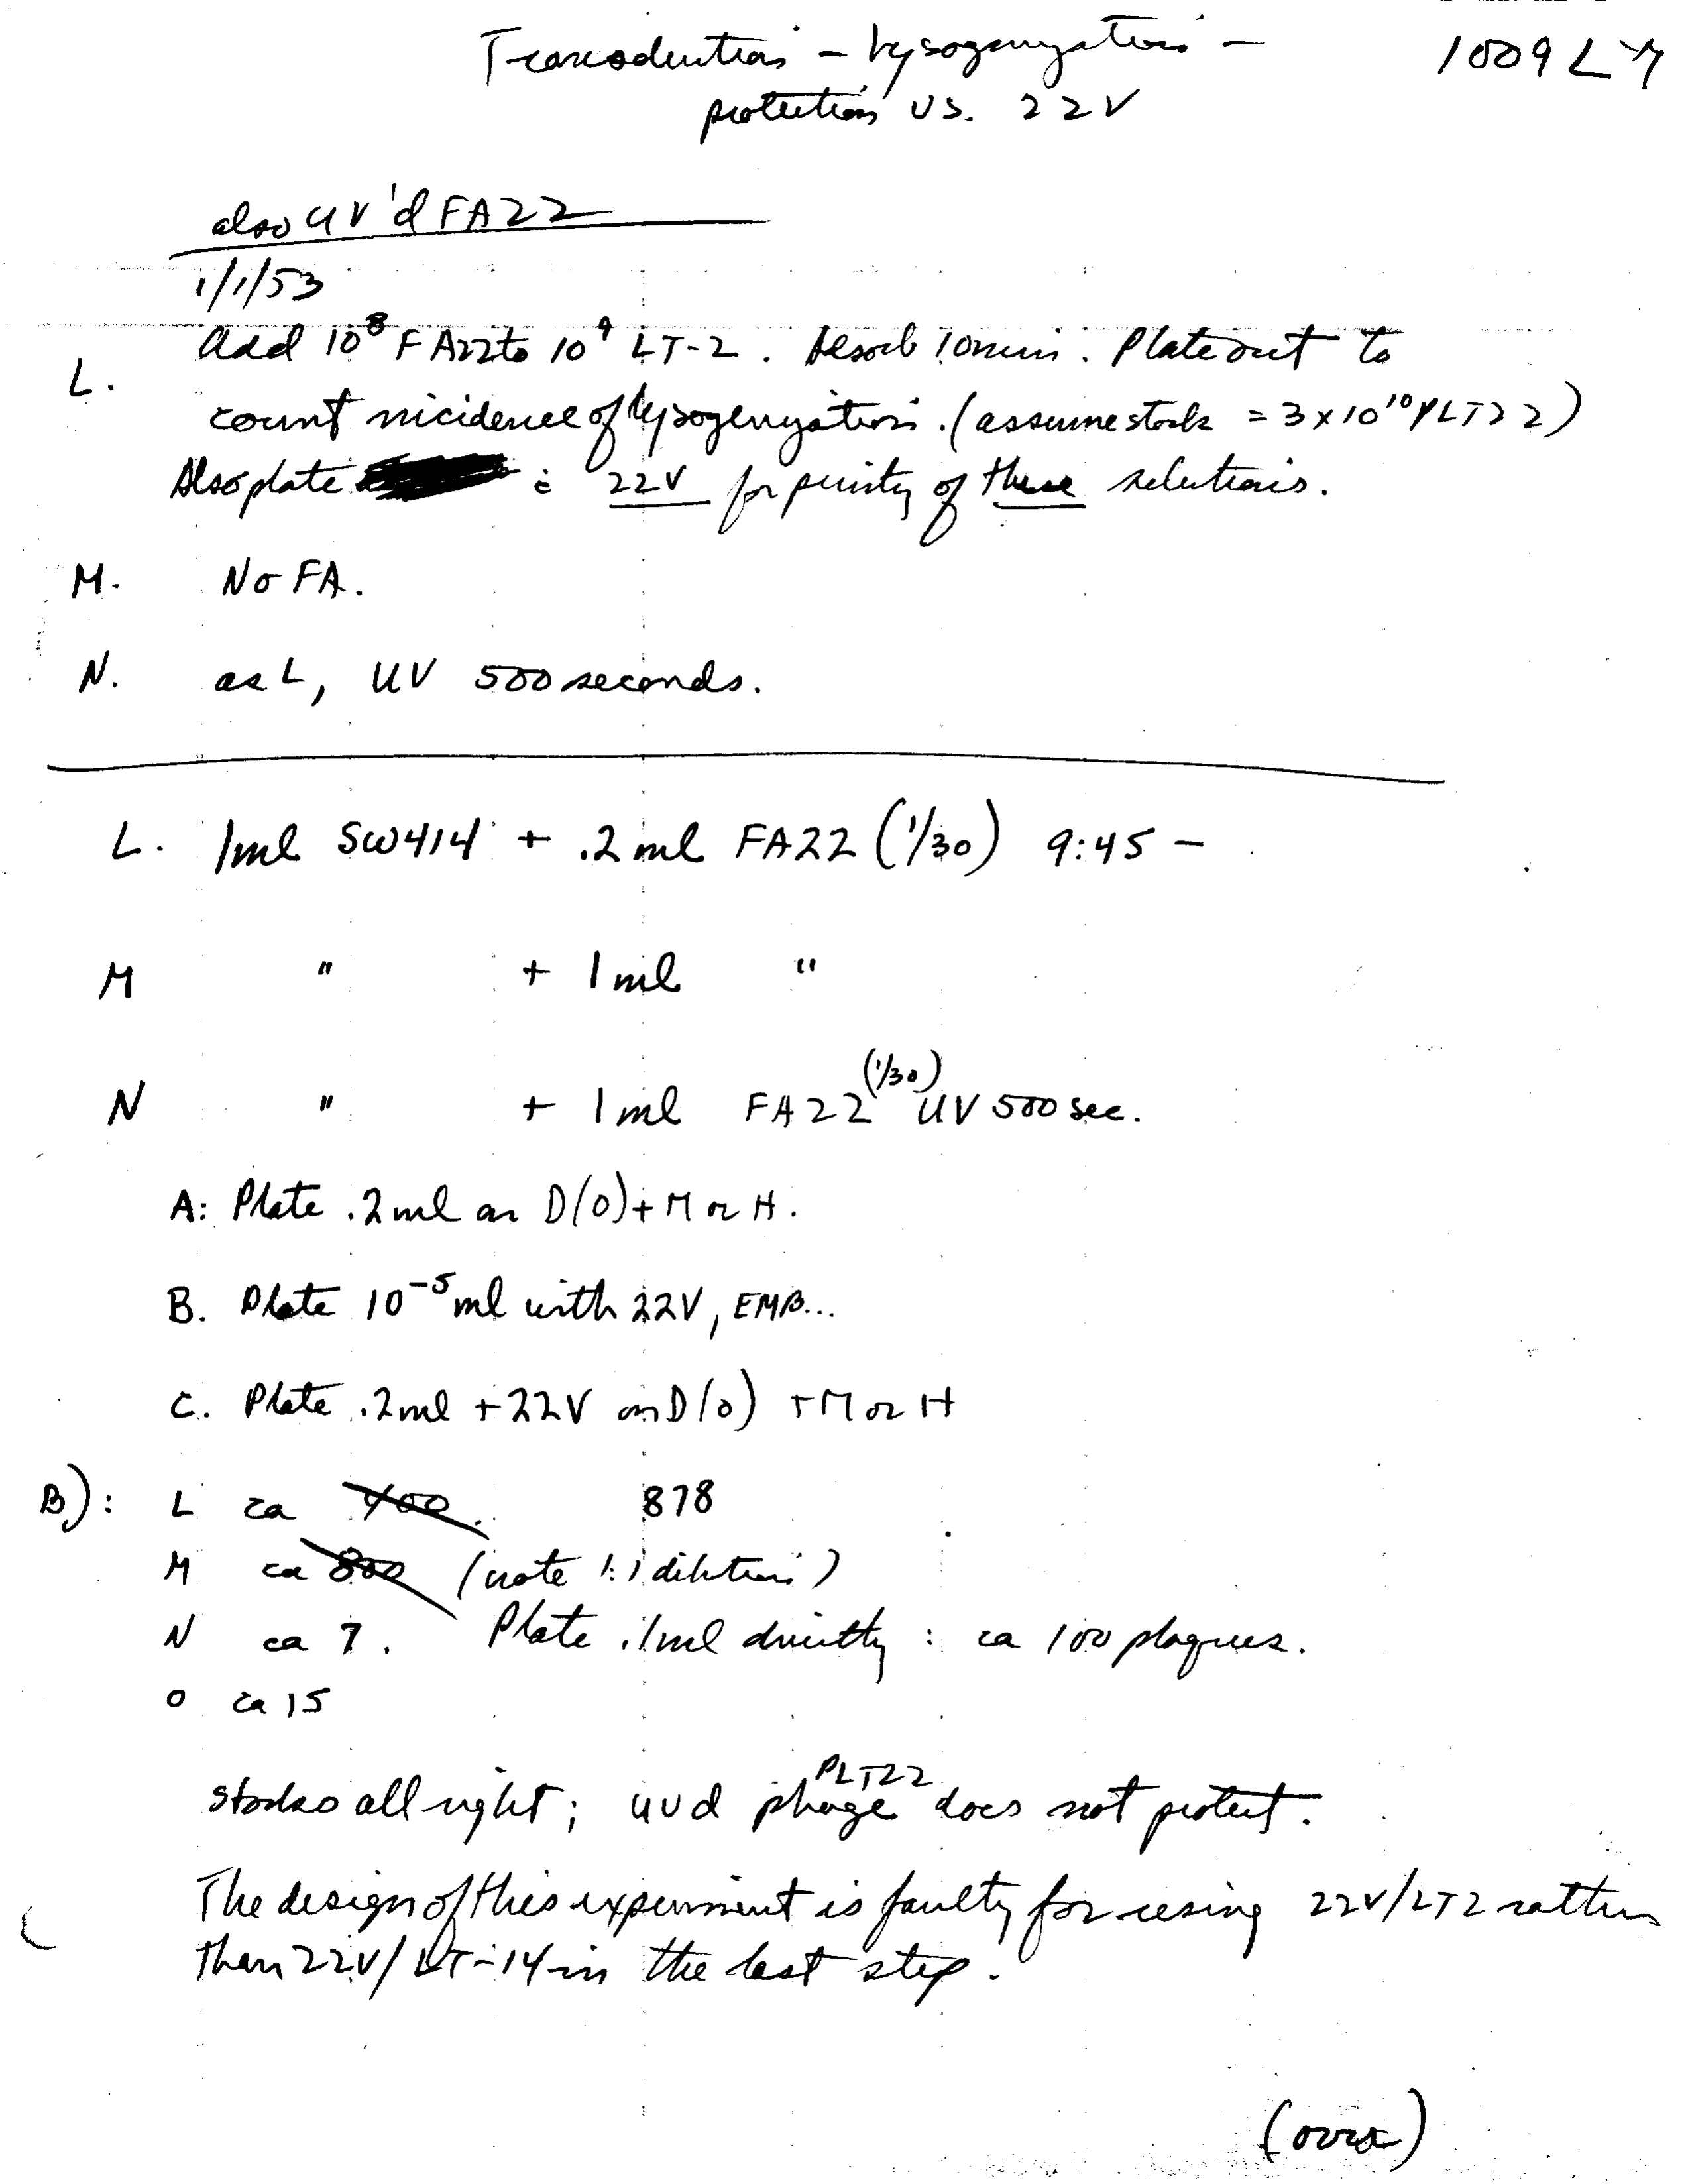 Transduction – Lysogenization –
1009 L
protection vs. 22V
also UV'd FA22
1/1/53
L. Add 10^8 FA22 to 10^9 LT-2. Adsorb 10 min. Plate out to
count incidence of lysogenization. (assume stock = 3 x 10^10 PLT22)
Also plate c̄ 22V for purity of these solutions.
M. No FA.
N. as L, UV 500 seconds.
L. 1ml SW414 + .2 ml FA22 (1/30) 9:45 –
M " + 1 ml "
N " + 1 ml FA22 (1/30) UV 500 sec.
A: Plate .2ml on D(0)+M or H.
B. Plate 10^-5 ml with 22V, EMB...
C. Plate .2ml + 22V on D(0) +M or H
B): L ca 400. 878
M ca 800 (note 1:1 dilution)
N ca 7. Plate .1ml directly : ca 100 plaques.
O ca 15
Stocks all right; uvd phage PLT22 does not protect.
The design of this experiment is faulty for using 22V/LT2 rather
than 22V/LT-14 in the last step.
(over)